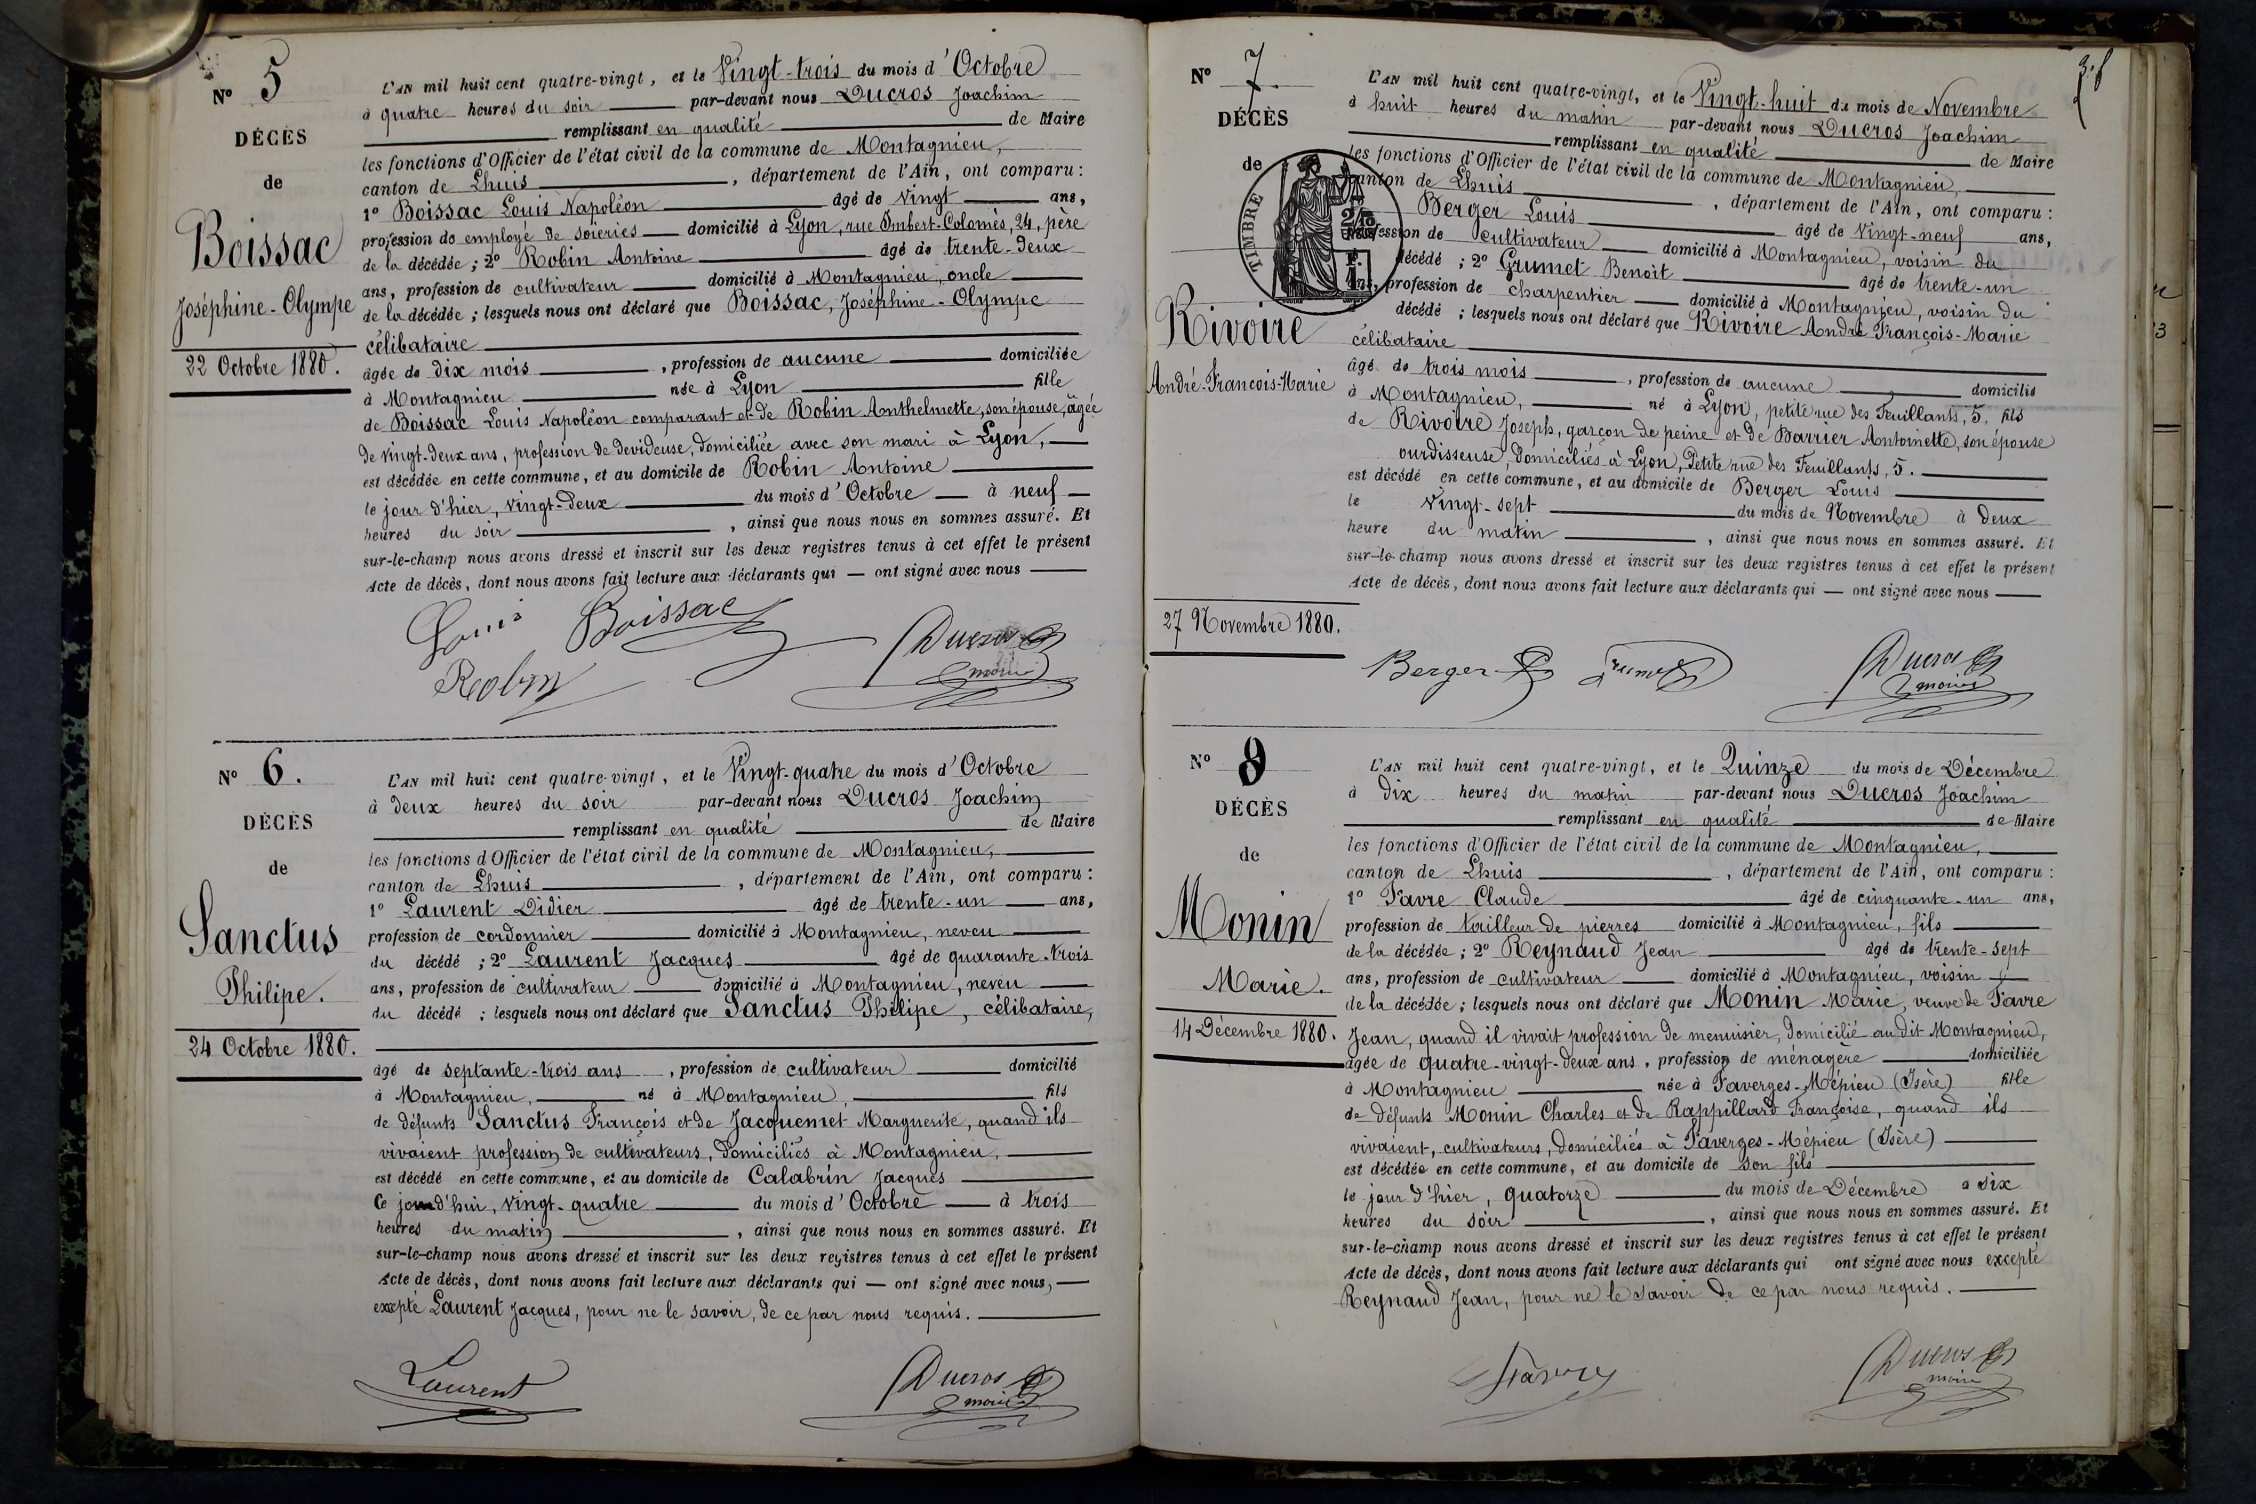 N° 5
DÉCÈS
de
Boissac
Joséphine-Olympe
22 Octobre 1880.
L'AN mil huit cent quatre-vingt, et le Vingt-trois du mois d'Octobre
à quatre heures du soir par-devant nous Ducros Joachim
remplissant en qualité de Maire
les fonctions d'Officier de l'état civil de la commune de Montagnieu,
canton de Lhuis, département de l'Ain, ont comparu :
1° Boissac Louis Napoléon âgé de vingt ans,
profession de employé de soieries domicilié à Lyon, rue Imbert-Colomès, 24, père
de la décédée ; 2° Robin Antoine âgé de trente-deux
ans, profession de cultivateur domicilié à Montagnieu, oncle
de la décédée ; lesquels nous ont déclaré que Boissac, Joséphine-Olympe
célibataire
âgée de dix mois, profession de aucune domiciliée
à Montagnieu née à Lyon fille
de Boissac Louis Napoléon comparant et de Robin Anthelmette, son épouse, âgée
de vingt-deux ans, profession de devideuse, domiciliée avec son mari à Lyon,
est décédée en cette commune, et au domicile de Robin Antoine
le jour d'hier, vingt-deux du mois d'Octobre à neuf
heures du soir, ainsi que nous nous en sommes assuré. Et
sur-le-champ nous avons dressé et inscrit sur les deux registres tenus à cet effet le présent
Acte de décès, dont nous avons fait lecture aux déclarants qui — ont signé avec nous
Louis Boissac
Robin
Ducros
maire
N° 6.
DÉCÈS
de
Sanctus
Philipe.
24 Octobre 1880.
L'AN mil huit cent quatre-vingt, et le Vingt-quatre du mois d'Octobre
à deux heures du soir par-devant nous Ducros Joachim
remplissant en qualité de Maire
les fonctions d'Officier de l'état civil de la commune de Montagnieu,
canton de Lhuis, département de l'Ain, ont comparu :
1° Laurent Didier âgé de trente-un ans,
profession de cordonnier domicilié à Montagnieu, neveu
du décédé ; 2° Laurent Jacques âgé de quarante-trois
ans, profession de cultivateur domicilié à Montagnieu, neveu
du décédé ; lesquels nous ont déclaré que Sanctus Philipe, célibataire,
âgé de septante-trois ans, profession de cultivateur domicilié
à Montagnieu, né à Montagnieu, fils
de défunts Sanctus François et de Jacquemet Marguerite, quand ils
vivaient profession de cultivateurs, domiciliés à Montagnieu,
est décédé en cette commune, et au domicile de Calabrin Jacques
Ce jourd'hui, vingt-quatre du mois d'Octobre — à trois
heures du matin, ainsi que nous nous en sommes assuré. Et
sur-le-champ nous avons dressé et inscrit sur les deux registres tenus à cet effet le présent
Acte de décès, dont nous avons fait lecture aux déclarants qui — ont signé avec nous,
excepté Laurent Jacques, pour ne le savoir, de ce par nous requis.
Laurent
Ducros
maire
N° 7.
DÉCÈS
de
TIMBRE
Rivoire
André-François-Marie
27 Novembre 1880.
L'AN mil huit cent quatre-vingt, et le Vingt-huit du mois de Novembre
à huit heures du matin par-devant nous Ducros Joachim
remplissant en qualité de Maire
les fonctions d'Officier de l'état civil de la commune de Montagnieu,
canton de Lhuis, département de l'Ain, ont comparu :
Berger Louis âgé de Vingt-neuf ans,
profession de cultivateur domicilié à Montagnieu, voisin du
décédé ; 2° Grumet Benoît âgé de trente-un
ans, profession de charpentier domicilié à Montagnieu, voisin du
décédé ; lesquels nous ont déclaré que Rivoire André François-Marie
célibataire
âgé de trois mois, profession de aucune domicilié
à Montagnieu, né à Lyon, petite rue des Feuillants, 5. fils
de Rivoire Joseph, garçon de peine et de Barrier Antoinette, son épouse
ourdisseuse, domiciliés à Lyon, Petite rue des Feuillants, 5.
est décédé en cette commune, et au domicile de Berger Louis
le Vingt-sept du mois de Novembre à deux
heure du matin, ainsi que nous nous en sommes assuré. Et
sur-le-champ nous avons dressé et inscrit sur les deux registres tenus à cet effet le présent
Acte de décès, dont nous avons fait lecture aux déclarants qui — ont signé avec nous
Berger Grumet
Ducros
maire
N° 8
DÉCÈS
de
Monin
Marie.
14 Décembre 1880.
L'AN mil huit cent quatre-vingt, et le Quinze du mois de Décembre
à dix heures du matin par-devant nous Ducros Joachim
remplissant en qualité de Maire
les fonctions d'Officier de l'état civil de la commune de Montagnieu,
canton de Lhuis, département de l'Ain, ont comparu :
1° Favre Claude âgé de cinquante-un ans,
profession de tailleur de pierres domicilié à Montagnieu, fils
de la décédée ; 2° Reynaud Jean âgé de trente-sept
ans, profession de cultivateur domicilié à Montagnieu, voisin
de la décédée ; lesquels nous ont déclaré que Monin Marie, veuve de Favre
Jean, quand il vivait profession de menuisier, domicilié au dit Montagnieu,
âgée de quatre-vingt-deux ans, profession de ménagère domiciliée
à Montagnieu née à Faverges-Mépieu (Isère) fille
de défunts Monin Charles et de Rappillard Françoise, quand ils
vivaient, cultivateurs, domiciliés à Faverges-Mépieu (Isère)
est décédée en cette commune, et au domicile de son fils
le jour d'hier, quatorze du mois de Décembre à six
heures du soir, ainsi que nous nous en sommes assuré. Et
sur-le-champ nous avons dressé et inscrit sur les deux registres tenus à cet effet le présent
Acte de décès, dont nous avons fait lecture aux déclarants qui ont signé avec nous excepté
Reynaud Jean, pour ne le savoir de ce par nous requis.
Favre
Ducros
maire